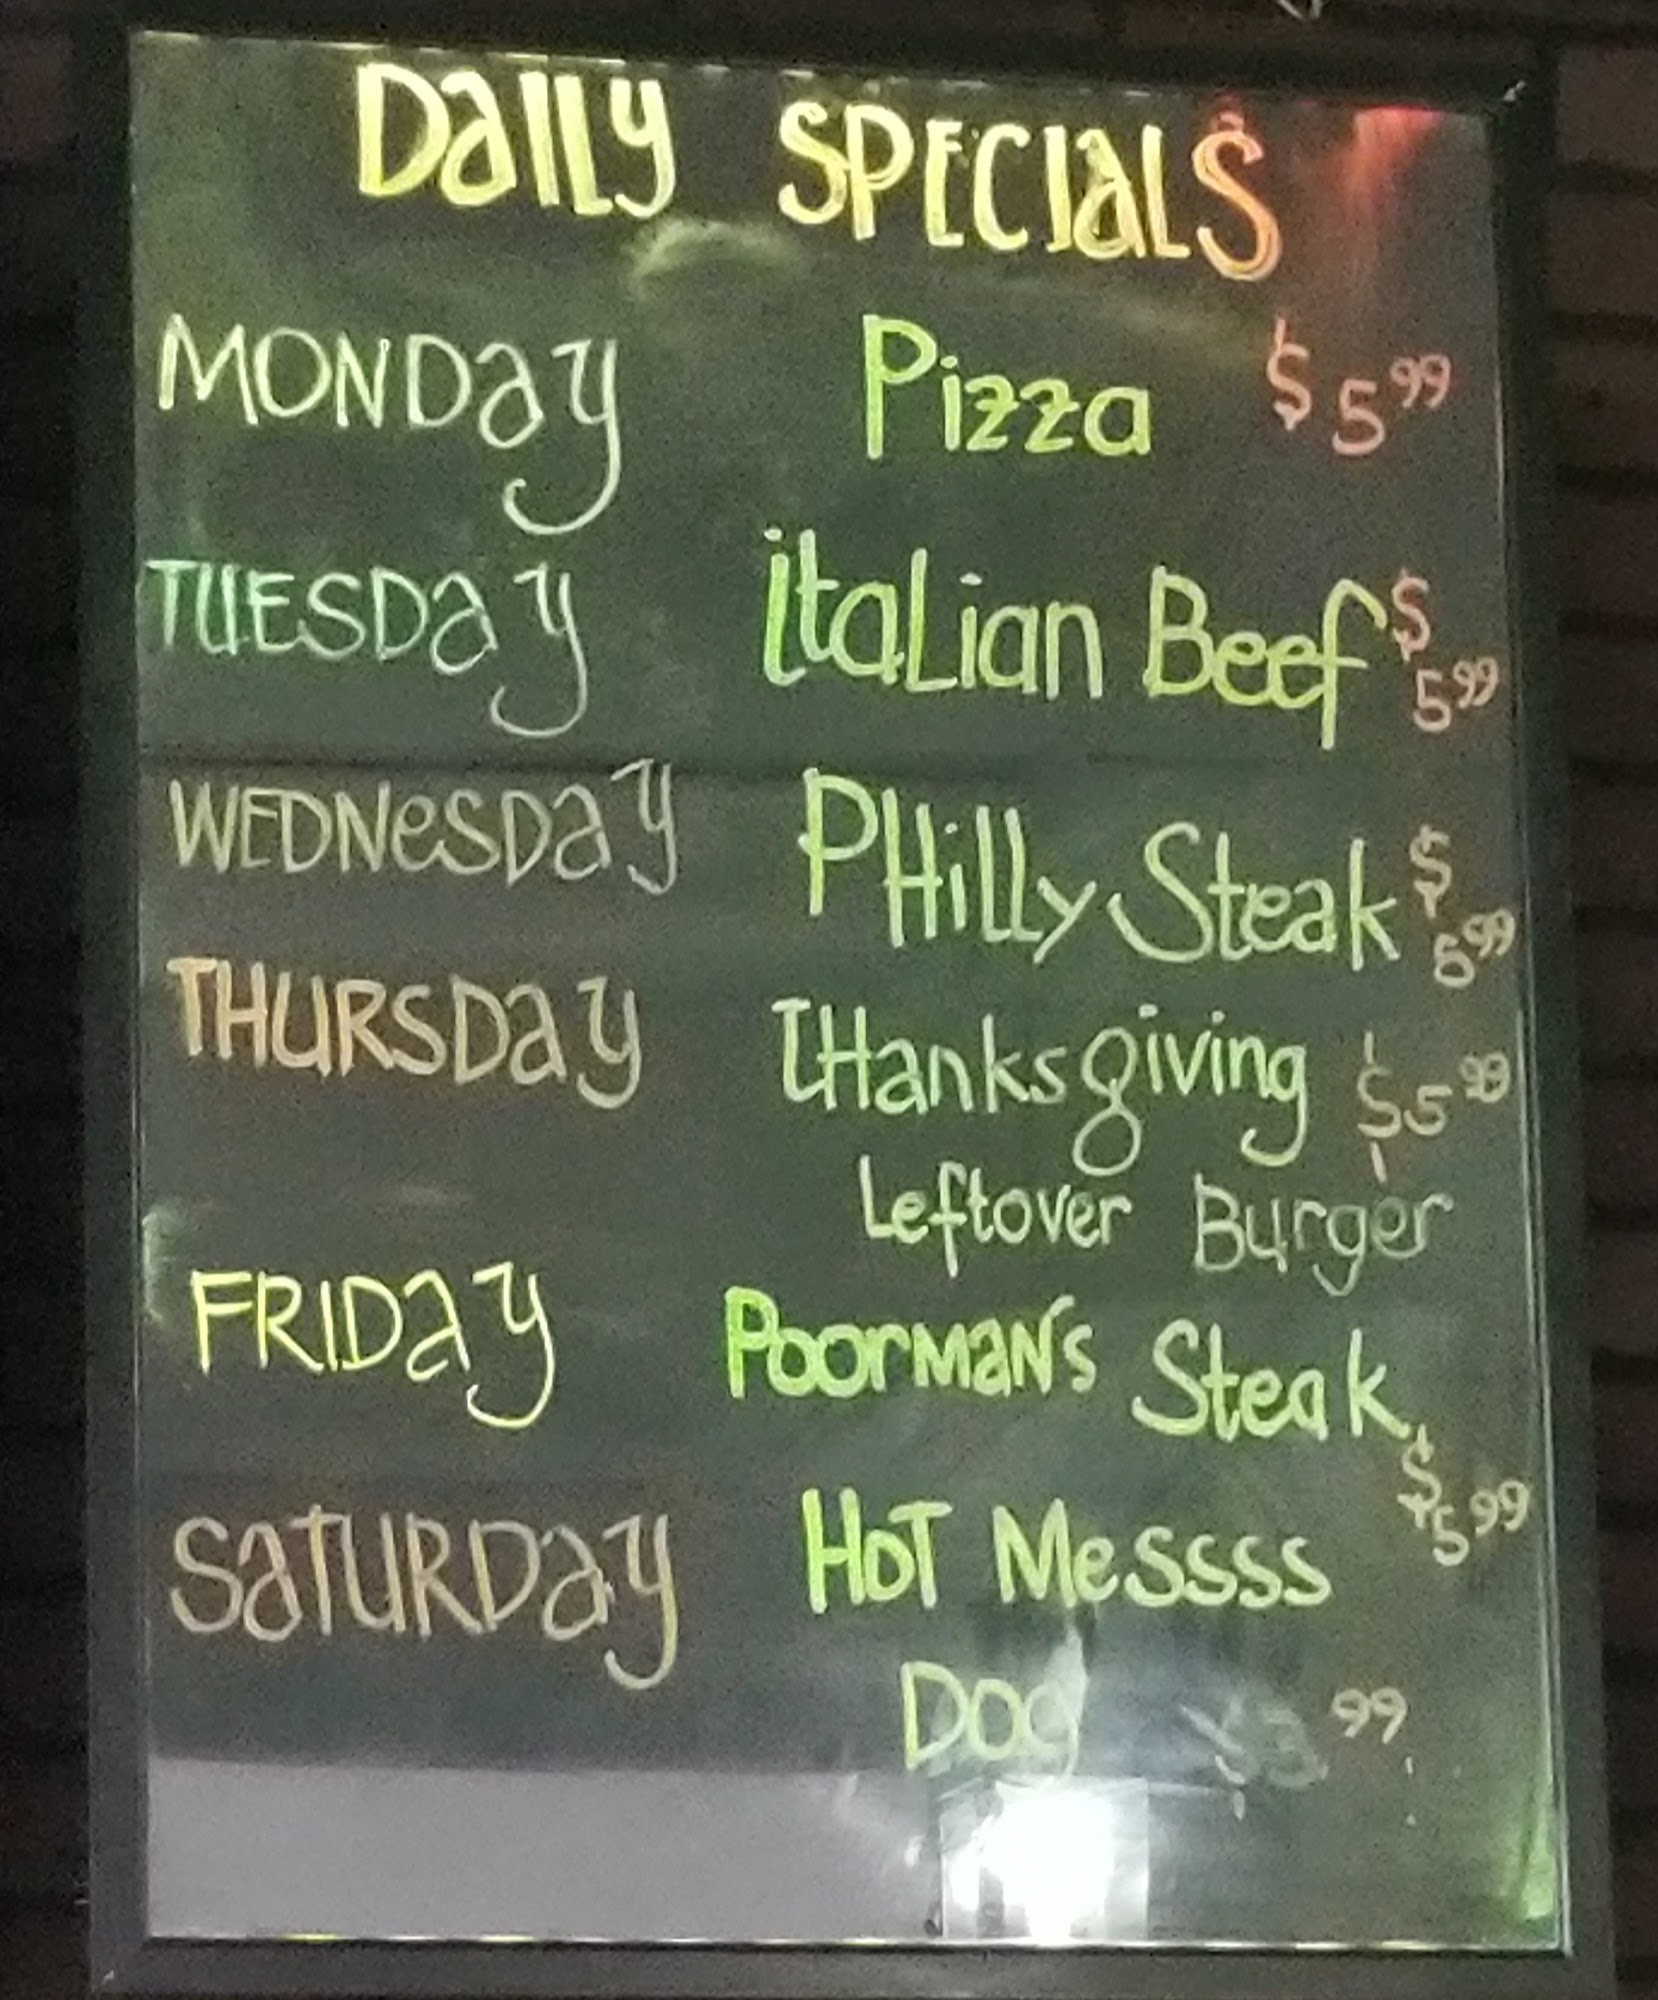 Daily SPECIALS
MONDAY Pizza $5.99
TUESDAY italian Beef $5.99
WEDNESDAY PHilly Steak $5.99
THURSDAY THanksgiving $5.99
Leftover Burger
FRIDAY Poorman's Steak $5.99
SATURDAY HoT Messsss
DOg 99